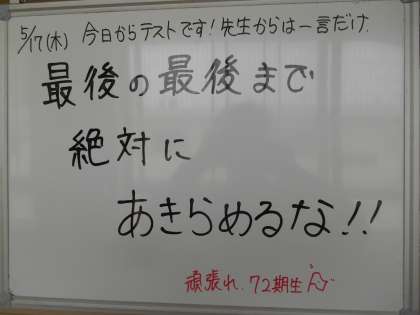 5/17(木) 今日からテストです!先生からは一言だけ.
最後の最後まで
絶対に
あきらめるな!!
頑張れ.72期生